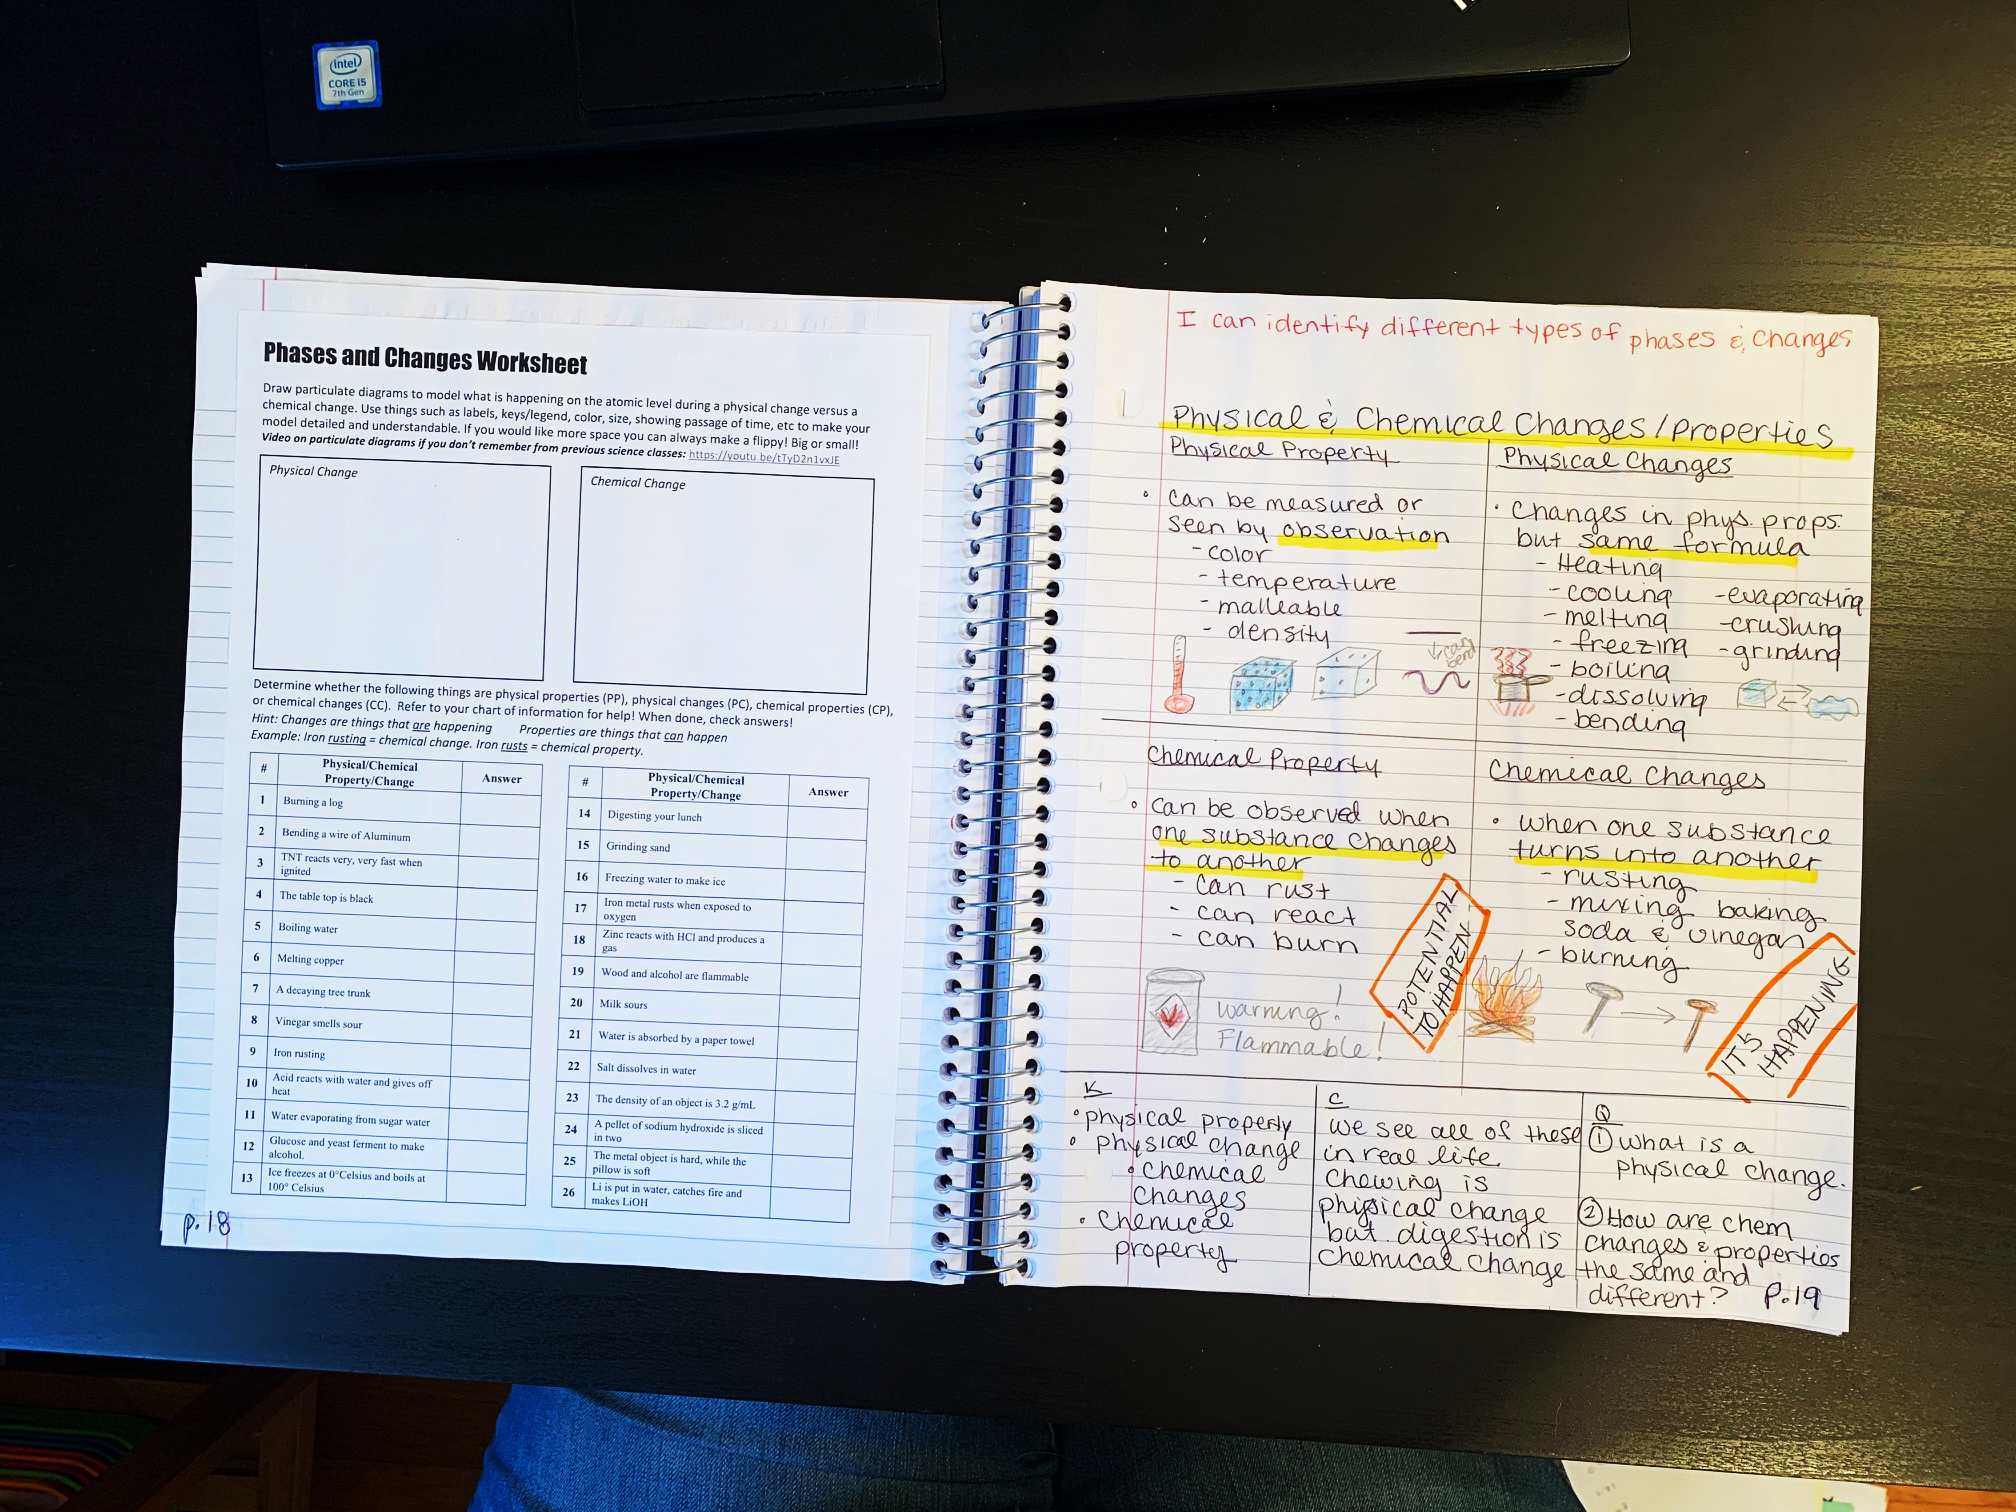 intel
CORE i5
7th Gen
Phases and Changes Worksheet
Draw particulate diagrams to model what is happening on the atomic level during a physical change versus a
chemical change. Use things such as labels, keys/legend, color, size, showing passage of time, etc to make your
model detailed and understandable. If you would like more space you can always make a flippy! Big or small!
Video on particulate diagrams if you don't remember from previous science classes: https://youtu.be/tTyD2n1vxJE
Physical Change
Chemical Change
Determine whether the following things are physical properties (PP), physical changes (PC), chemical properties (CP),
or chemical changes (CC). Refer to your chart of information for help! When done, check answers!
Hint: Changes are things that are happening Properties are things that can happen
Example: Iron rusting = chemical change. Iron rusts = chemical property.
# Physical/Chemical Property/Change Answer
1 Burning a log
2 Bending a wire of Aluminum
3 TNT reacts very, very fast when
ignited
4 The table top is black
5 Boiling water
6 Melting copper
7 A decaying tree trunk
8 Vinegar smells sour
9 Iron rusting
10 Acid reacts with water and gives off
heat
11 Water evaporating from sugar water
12 Glucose and yeast ferment to make
alcohol.
13 Ice freezes at 0°Celsius and boils at
100° Celsius
# Physical/Chemical Property/Change Answer
14 Digesting your lunch
15 Grinding sand
16 Freezing water to make ice
17 Iron metal rusts when exposed to
oxygen
18 Zinc reacts with HCl and produces a
gas
19 Wood and alcohol are flammable
20 Milk sours
21 Water is absorbed by a paper towel
22 Salt dissolves in water
23 The density of an object is 3.2 g/mL
24 A pellet of sodium hydroxide is sliced
in two
25 The metal object is hard, while the
pillow is soft
26 Li is put in water, catches fire and
makes LiOH
p.18
I can identify different types of phases & changes
Physical & Chemical Changes/properties
Physical Property
• can be measured or
seen by observation
- color
- temperature
- malleable
- density
↓ can bend
Physical Changes
• Changes in phys. props.
but same formula
- Heating
- cooling - evaporating
- melting - crushing
- freezing - grinding
- boiling
- dissolving
- bending
Chemical Property
• can be observed when
one substance changes
to another
- can rust
- can react
- can burn
Warning!
Flammable!
POTENTIAL
TO HAPPEN
Chemical Changes
• when one substance
turns into another
- rusting
- mixing baking
soda & vinegar
- burning
IT'S
HAPPENING
K
• physical property
• physical change
• chemical
changes
• chemical
property
C
we see all of these
in real life.
Chewing is
physical change
but digestion is
chemical change
Q
① What is a
physical change.
② How are chem
changes & properties
the same and
different?
p.19